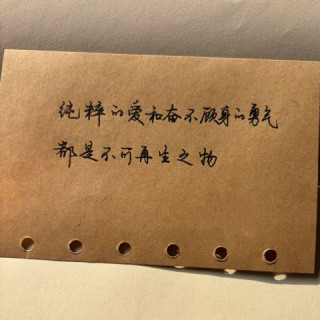 纯粹的爱和奋不顾身的勇气
都是不可再生之物